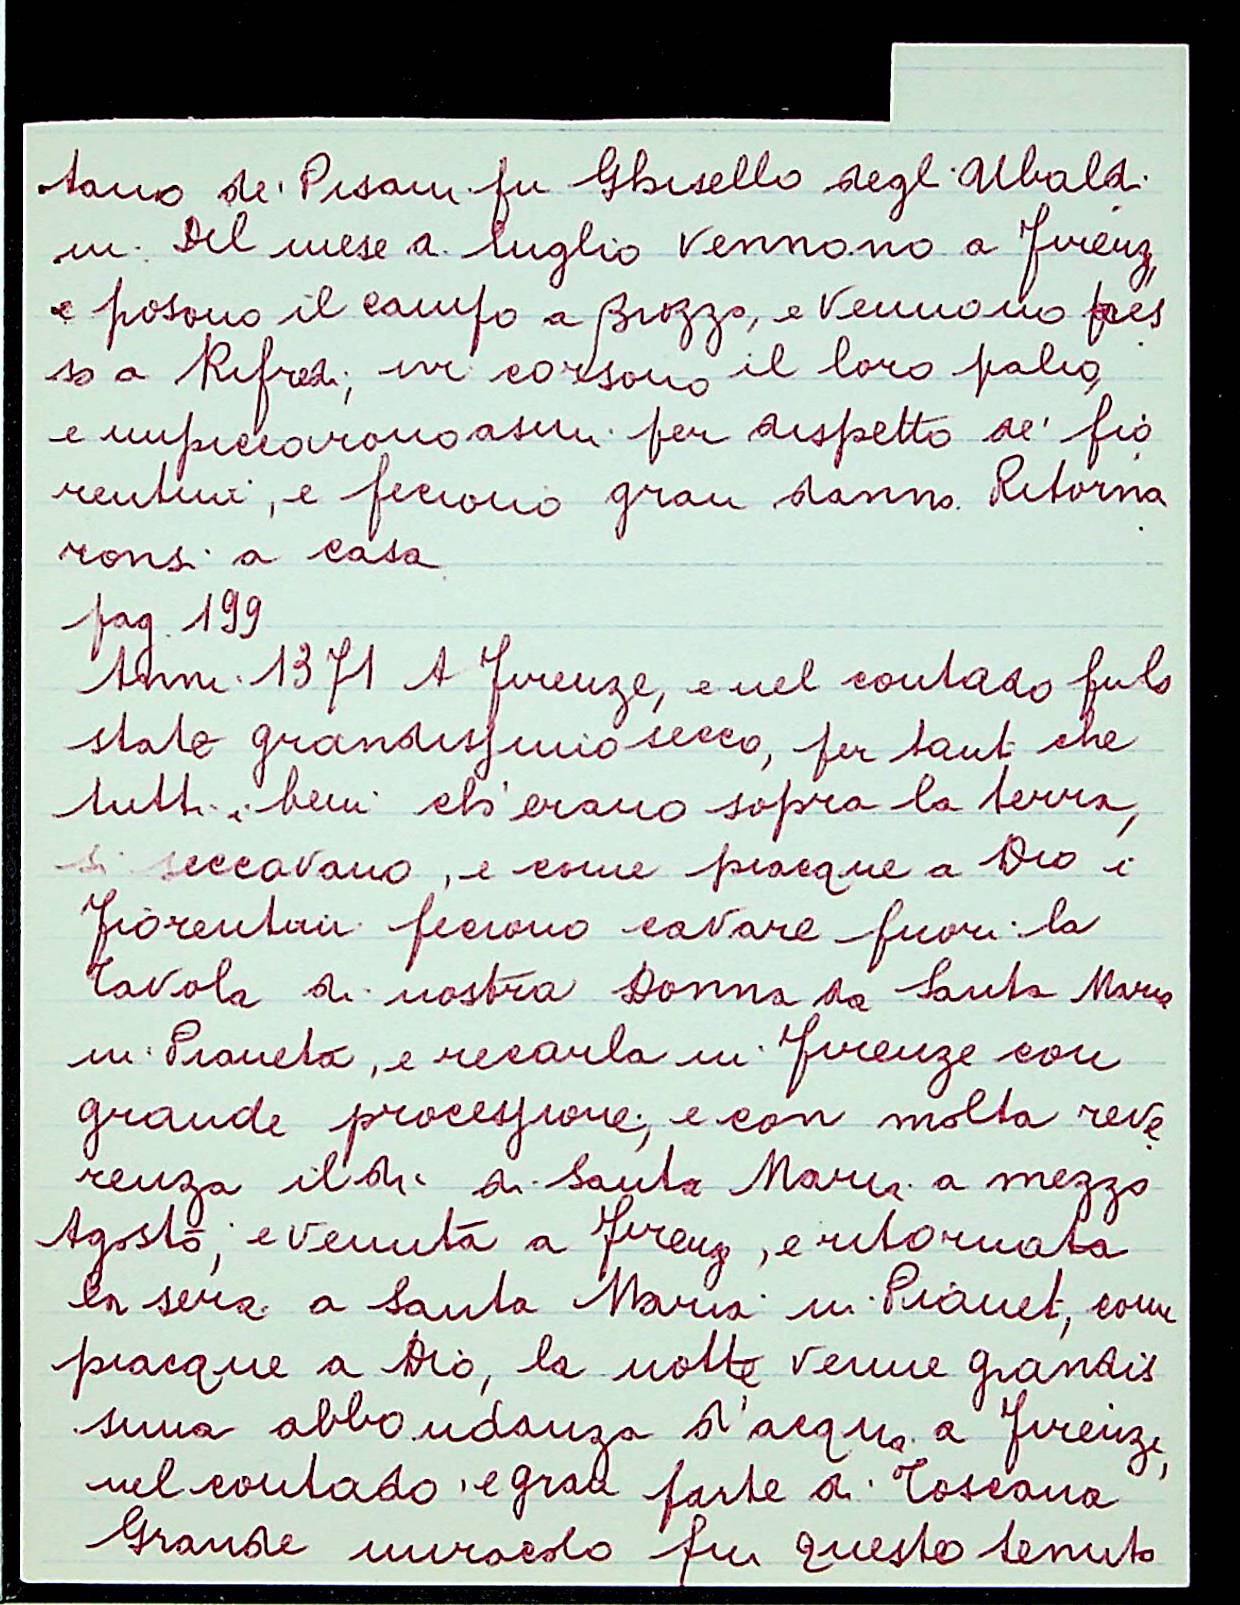 tano de' Pisani fu Ghisello degl' Ubald
ni. Del mese di luglio vennono a Firenz,
e posono il campo a Brozzo, e vennono pres
so a Rifredi, ivi corsono il loro palio,
e impiccorono asini per dispetto de' fio
rentini, e feciono gran danno. Ritorna
ronsi a casa
pag. 199
Anni 1371 A Firenze, e nel contado fu lo
state grandissimo secco, per tant che
tutti i beni ch'erano sopra la terra,
si seccavano, e come piacque a Dio i
Fiorentini feciono cavare fuori la
Tavola di nostra Donna da Santa Maria
in Pianeta, e recarla in Firenze con
grande processione, e con molta reve
renza il di di Santa Maria a mezzo
Agosto, e venuta a Firenz, e ritornata
la sera a Santa Maria in Pianet, come
piacque a Dio, la notte venne grandis
sima abbondanza d'acqua a Firenze,
nel contado, e gran parte di Toscana
Grande miracolo fu questo tenuto